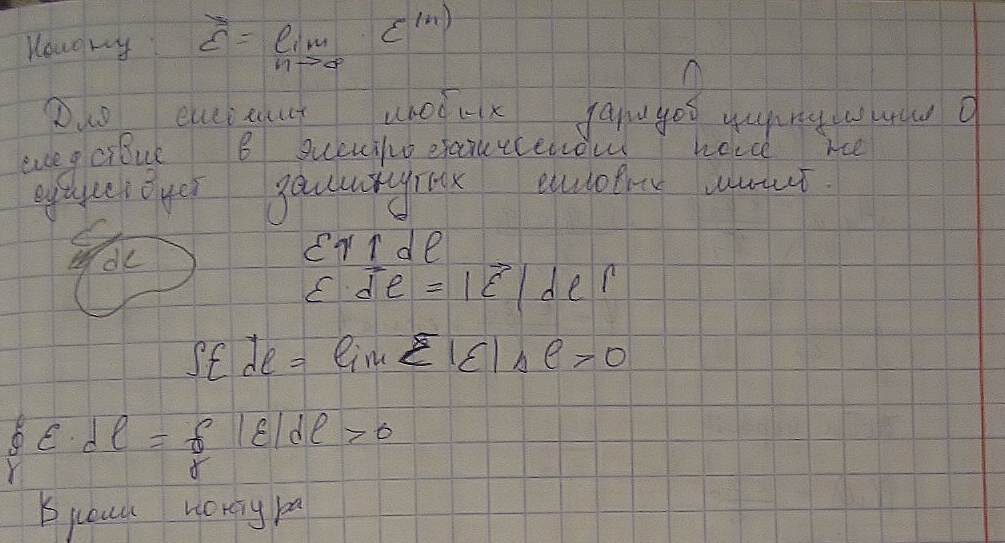 Потому ℰ⃗ = lim ℰ⁽ⁿ⁾
n→∞
Для системы любых зарядов циркуляция 0
следствие в электростатическом поле не
существует замкнутых силовых линий.
ℰ
dl
ℰ↑↑dl
ℰ·dl⃗ = |ℰ⃗|dl
∫ℰ dl⃗ = lim Σ|ℰ|Δl > 0
∮ ℰ·dl = ∮ |ℰ|dl > 0
γ γ
В роли контура